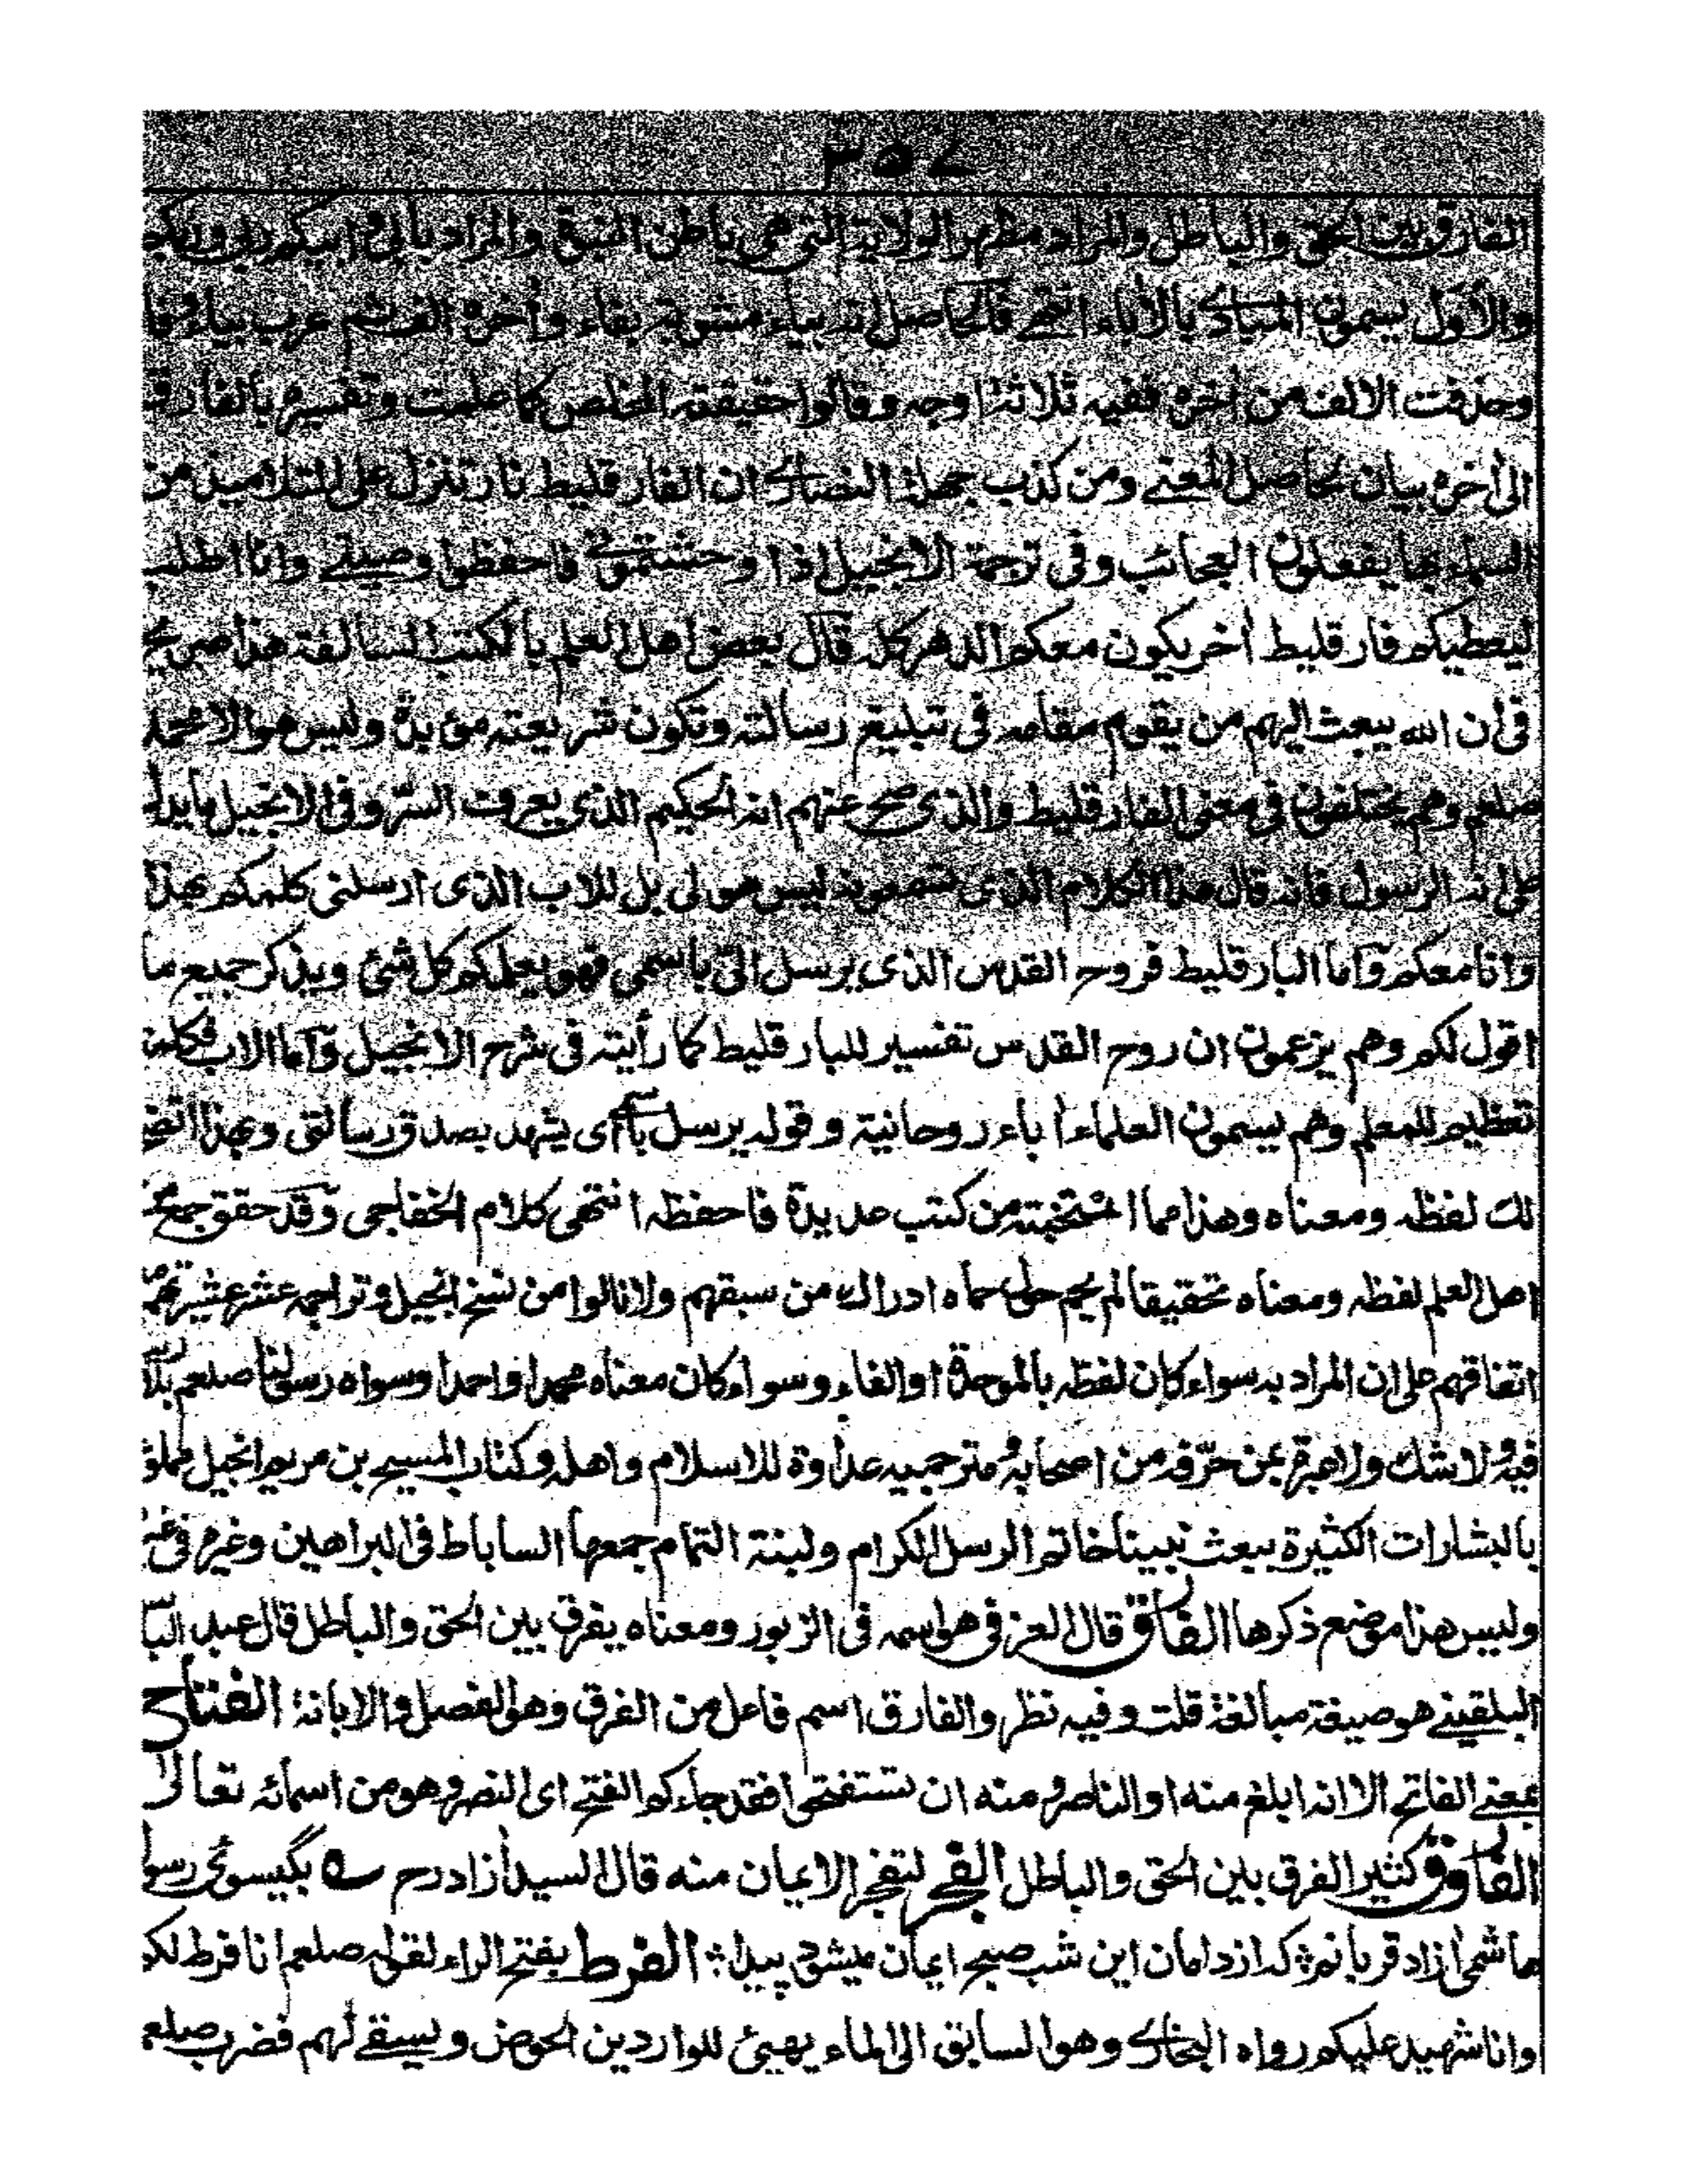 ٣٥٧
الفارق بين الحق والباطل والمراد مظهر الولاية التى هى باطن النبوة والمراد بابى وابيكم ربى وربكم
والأول يسمون المبادى بالأباء انتهى فالحاصل انه بباء مشوبة بفاء وأخره الف ثم عرب بباء وفا
وحذفت الالف من أخره ففيه ثلاثة اوجه وقالوا حقيقته المخلص كما علمت وتفسيره بالفارق
الى أخره بيان لحاصل المعنى ومن كذب جهلة النصارى ان الفار قليط نار تنزل على التلاميذ من
السماء بها يفعلون العجائب وفى ترجمة الانجيل اذا فاحفظوا وصيتى وانا اطلب
ليعطيكم فار قليط أخر يكون معكم الدهر كله قال بعض اهل العلم بالكتب السالفة هذا صريح
فى ان الله يبعث اليهم من يقوم مقامه فى تبليغ رسالته وتكون شريعته مؤبدة وليس هو الا محمد
صلعم وهم يختلفون فى معنى الفار قليط والذى صح عنهم انه الحكيم الذى يعرف السر وفى الانجيل ما يدل
على انه الرسول فانه قال هذا الكلام الذى تسمعونه ليس هو لى بل للاب الذى ارسلنى كلمتكم بهذا
وانا معكم وأما البار قليط فروح القدس الذى يرسل ابى باسمى فهو يعلمكم كل شئ ويذكر جميع ما
اقول لكم وهم يزعمون ان روح القدس تفسير للبار قليط كما رأيته فى شرح الانجيل وأما الاب فكلمة
تعظيم للمعلم وهم يسمون العلماء أباء روحانية وقوله يرسل باسمى أى يشهد بصدق رسالتى وبهذا اتضح
لك لفظه ومعناه وهذا مما انتخبته من كتب عديدة فاحفظه انتهى كلام الخفاجى وقد حقق جمع من
اهل العلم لفظه ومعناه تحقيقا لم يحم على حماه ادراك من سبقهم ولا نالوا من نسخ انجيل وتراجمه عشر عشيرهم مع
اتفاقهم على ان المراد به سواء كان لفظه بالموحدة او الفاء وسواء كان معناه محمدا واحمدا وسواه رسولنا صلعم بلا ريب
فيه ولا شك ولا عبرة بمن حرّفه من اصحابه ومترجميه عداوة للاسلام واهله وكتاب المسيح بن مريم انجيل مملو
بالبشارات الكثيرة ببعث نبينا خاتم الرسل الكرام ولبنة التمام جمعها الساباط فى البراهين وغيره فى غيره
وليس هذا موضع ذكرها الفارق قال العزفى هو اسمه فى الزبور ومعناه يفرق بين الحق والباطل قال عبد الباسط
البلقينى هو صيغة مبالغة قلت وفيه نظر والفارق اسم فاعل من الفرق وهو الفصل والابانة الفتاح
بمعنى الفاتح الا انه ابلغ منه او الناصر ومنه ان تستفتحوا فقد جاءكم الفتح اى النصر وهو من اسمائه تعالى
الفاروق كثير الفرق بين الحق والباطل الفجر لتفجر الايمان منه قال السيد أزاد رح ــه بگيسوئ رسول
هاشمى أزاد قربانم ۞ كه از دامان اين شب صبح ايمان ميشود پيدا ۞ الفرط بفتح الراء لقوله صلعم انا فرط لكم
وانا شهيد عليكم رواه البخارى وهو السابق الى الماء يهيئ للواردين الحوض ويستقى لهم فضرب صلعم